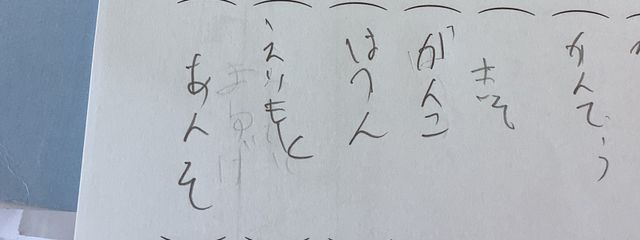 かんてう
きそ
がんこ
はつん
えりもと
あんそ